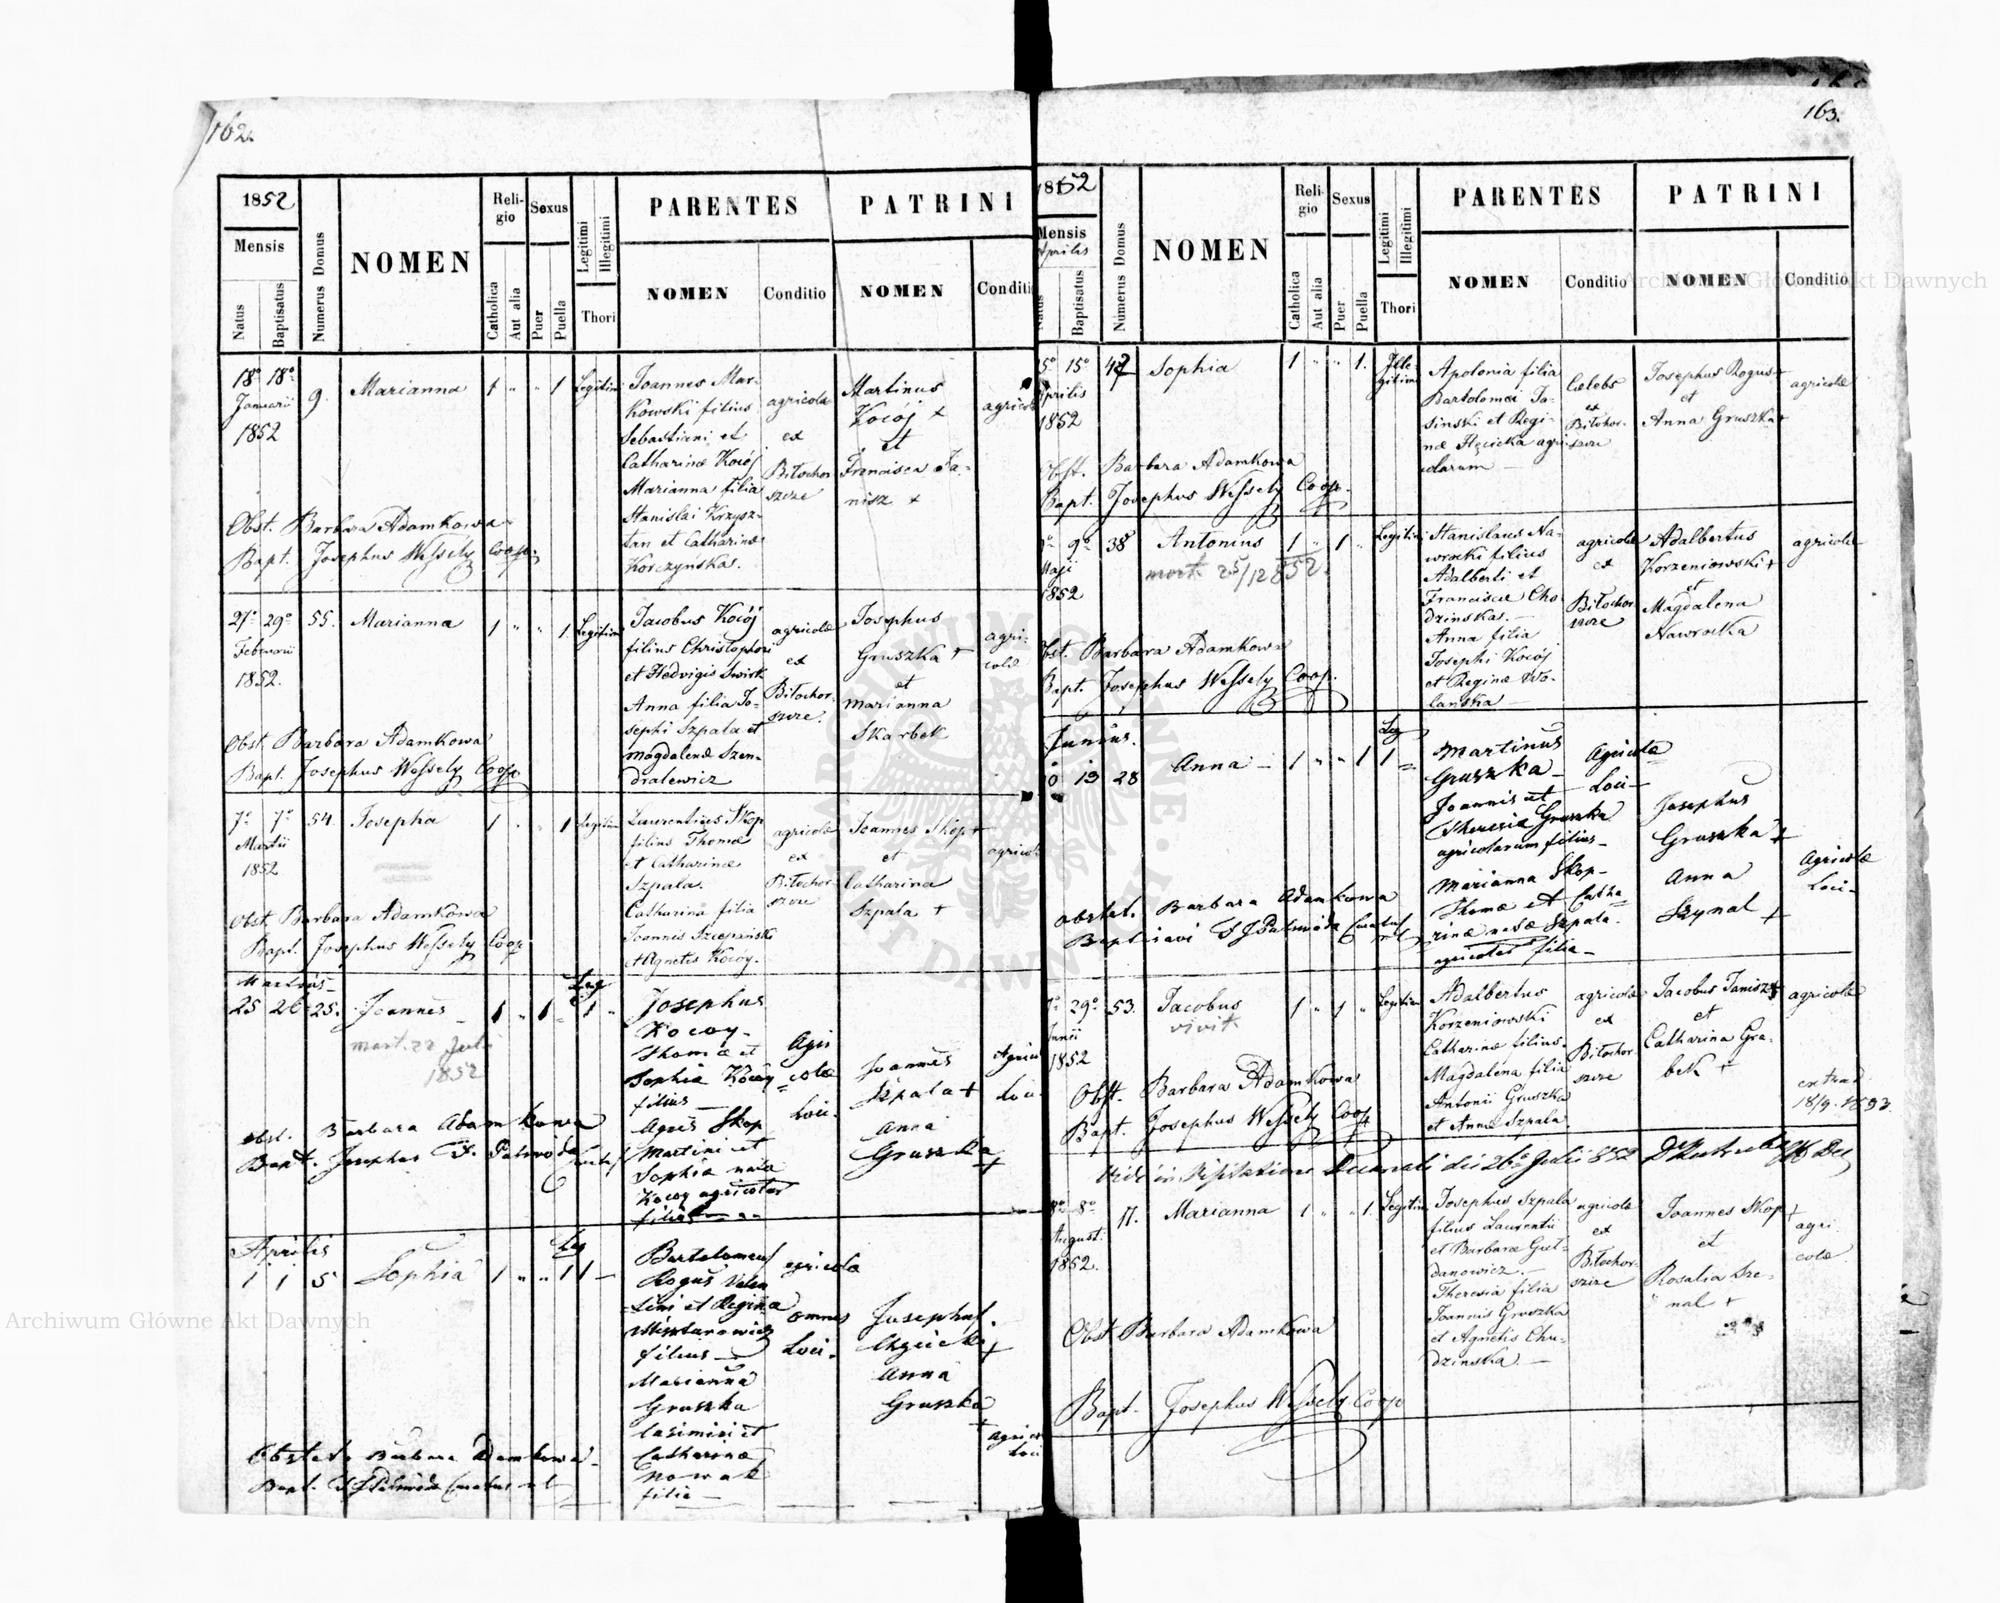 162.
1852
Mensis
Natus
Baptisatus
Numerus Domus
NOMEN
Reli-
gio
Catholica
Aut alia
Sexus
Puer
Puella
Legitimi
Illegitimi
Thori
PARENTES
NOMEN
Conditio
PATRINI
NOMEN
Conditi
18° 18°
Januarii
1852
9.
Marianna
1 " " 1
Legitim
Joannes Mar-
kowski filius
Sebastiani et
Catharinæ Kocój
Marianna filia
Stanislai Krzysz-
tan et Catharinæ
Korczynskas.
agricolæ
ex
Biłochor
szcze
Martinus
Kocój +
et
Francisca Ja-
nisz +
agricol
Obst. Barbara Adamkowa
Bapt. Josephus Wessely Coop.
27° 29°
Februarii
1852.
55.
Marianna
1 " " 1
Legitim
Jacobus Kocój
filius Christophori
et Hedvigis Swirk
Anna filia Jo-
sephi Szpala et
Magdalenæ Szen-
dralewicz
agricolæ
ex
Biłochor
szcze.
Josephus
Gruszka +
et
Marianna
Skarbek
agri-
colæ
Obst. Barbara Adamkowa
Bapt. Josephus Wessely Coop
7° 7°
Martii
1852
54
Josepha
1 " " 1
Legitim
Laurentius Skop
filius Thomæ
et Catharinæ
Szpala.
Catharina filia
Joannis Szczepański
et Agnetis Kocoy.
agricolæ
ex
Biłochor
szcze
Joannes Skop +
et
Catharina
Szpala +
agricol
Obst Barbara Adamkowa
Bapt. Josephus Wessely Coop
Martius
25 26 25.
Joannes
mort. 22 Juli
1852
1 " 1 "
Leg
1 "
Josephus
Kocoy
Thomæ et
Sophiæ Kocoy
filius
Agnes Skop
Martini et
Sophiæ nata
Kocoy agricolar
filia
Agri
colæ
Loci.
Joannes
Szpala +
Anna
Gruszka
+
Agricol
Loci
obst. Barbara Adamkowa
Bapt. Josephus
Aprilis
1 1 5
Sophia
1 " " 1
Leg
1
Bartolomeus
Rogus Valen
tini et Regina
filius
Marianna
Gruszka
Casimiri et
Catharinæ
Nowak
filia
agricolæ
omnes
Loci.
Josephus
+
Anna
Gruszka
+
agricol
Loci
Obstet. Barbara Adamkowa
Bapt.
163.
1852
Mensis
Aprilis
Natus
Baptisatus
Numerus Domus
NOMEN
Reli-
gio
Catholica
Aut alia
Sexus
Puer
Puella
Legitimi
Illegitimi
Thori
PARENTES
NOMEN
Conditio
PATRINI
NOMEN
Conditio
5° 15°
Aprilis
1852
47
Sophia
1 " " 1.
Ille-
gitimi
Apolonia filia
Bartolomei Ja-
sinski et Regi-
næ agri-
colarum
Cælebs
ex
Biłochor-
szcze
Josephus Rogus +
et
Anna Gruszka +
agricolæ
Obst. Barbara Adamkowa
Bapt. Josephus Wessely Coop.
9°
Maji
1852
38
Antonius
mort. 25/12 852.
1 " 1 "
Legitim
Stanislaus Na-
wrocki filius
Adalberti et
Franciscæ Cho
dzinskas.
Anna filia
Josephi Kocój
et Reginæ Wo-
lańska
agricolæ
ex
Biłochor
szcze
Adalbertus
Korzeniowski +
et
Magdalena
Nawrocka
agricolæ
Obst. Barbara Adamkowa
Bapt. Josephus Wessely Coop.
Junius.
10 13 28
Anna
1 " " 1
Leg
1
Martinus
Gruszka
Joannis et
Theresiæ Gruszka
agricolarum filius
Marianna Skop
Thomæ et Catha
rinæ natæ Szpala
agricolar filia
Agricola
Loci
Josephus
Gruszka +
Anna
Szynal +
Agricolæ
Loci
obstet. Barbara Adamkowa
29°
Junii
1852
53.
Jacobus
vivit
1 " 1 "
Legitim
Adalbertus
Korzeniowski
Catharinæ filius
Magdalena filia
Antonii Gruszka
et Annæ Szpala
agricolæ
ex
Biłochor
szcze
Jacobus Janisz +
et
Catharina Gra-
bek +
agricolæ
extrad.
18/9. 1893.
Obst. Barbara Adamkowa
Bapt. Josephus Wessely Coop
Vidi in Visitatione Decanali die 26a Julii 852
8° 8°
August.
1852.
17.
Marianna
1 " " 1
Legitim
Josephus Szpala
filius Laurentii
et Barbaræ Gwi-
danowicz.
Theresia filia
Joannis Gruszka
et Agnetis Chu-
dzinska.
agricolæ
ex
Biłochor-
szcze
Joannes Skop +
et
Rosalia Sze-
nal +
agri
colæ
Obst Barbara Adamkowa
Bapt. Josephus Wessely Coop
Archiwum Główne Akt Dawnych
Archiwum Główne Akt Dawnych
ARCHIWUM GŁÓWNE AKT DAWNYCH